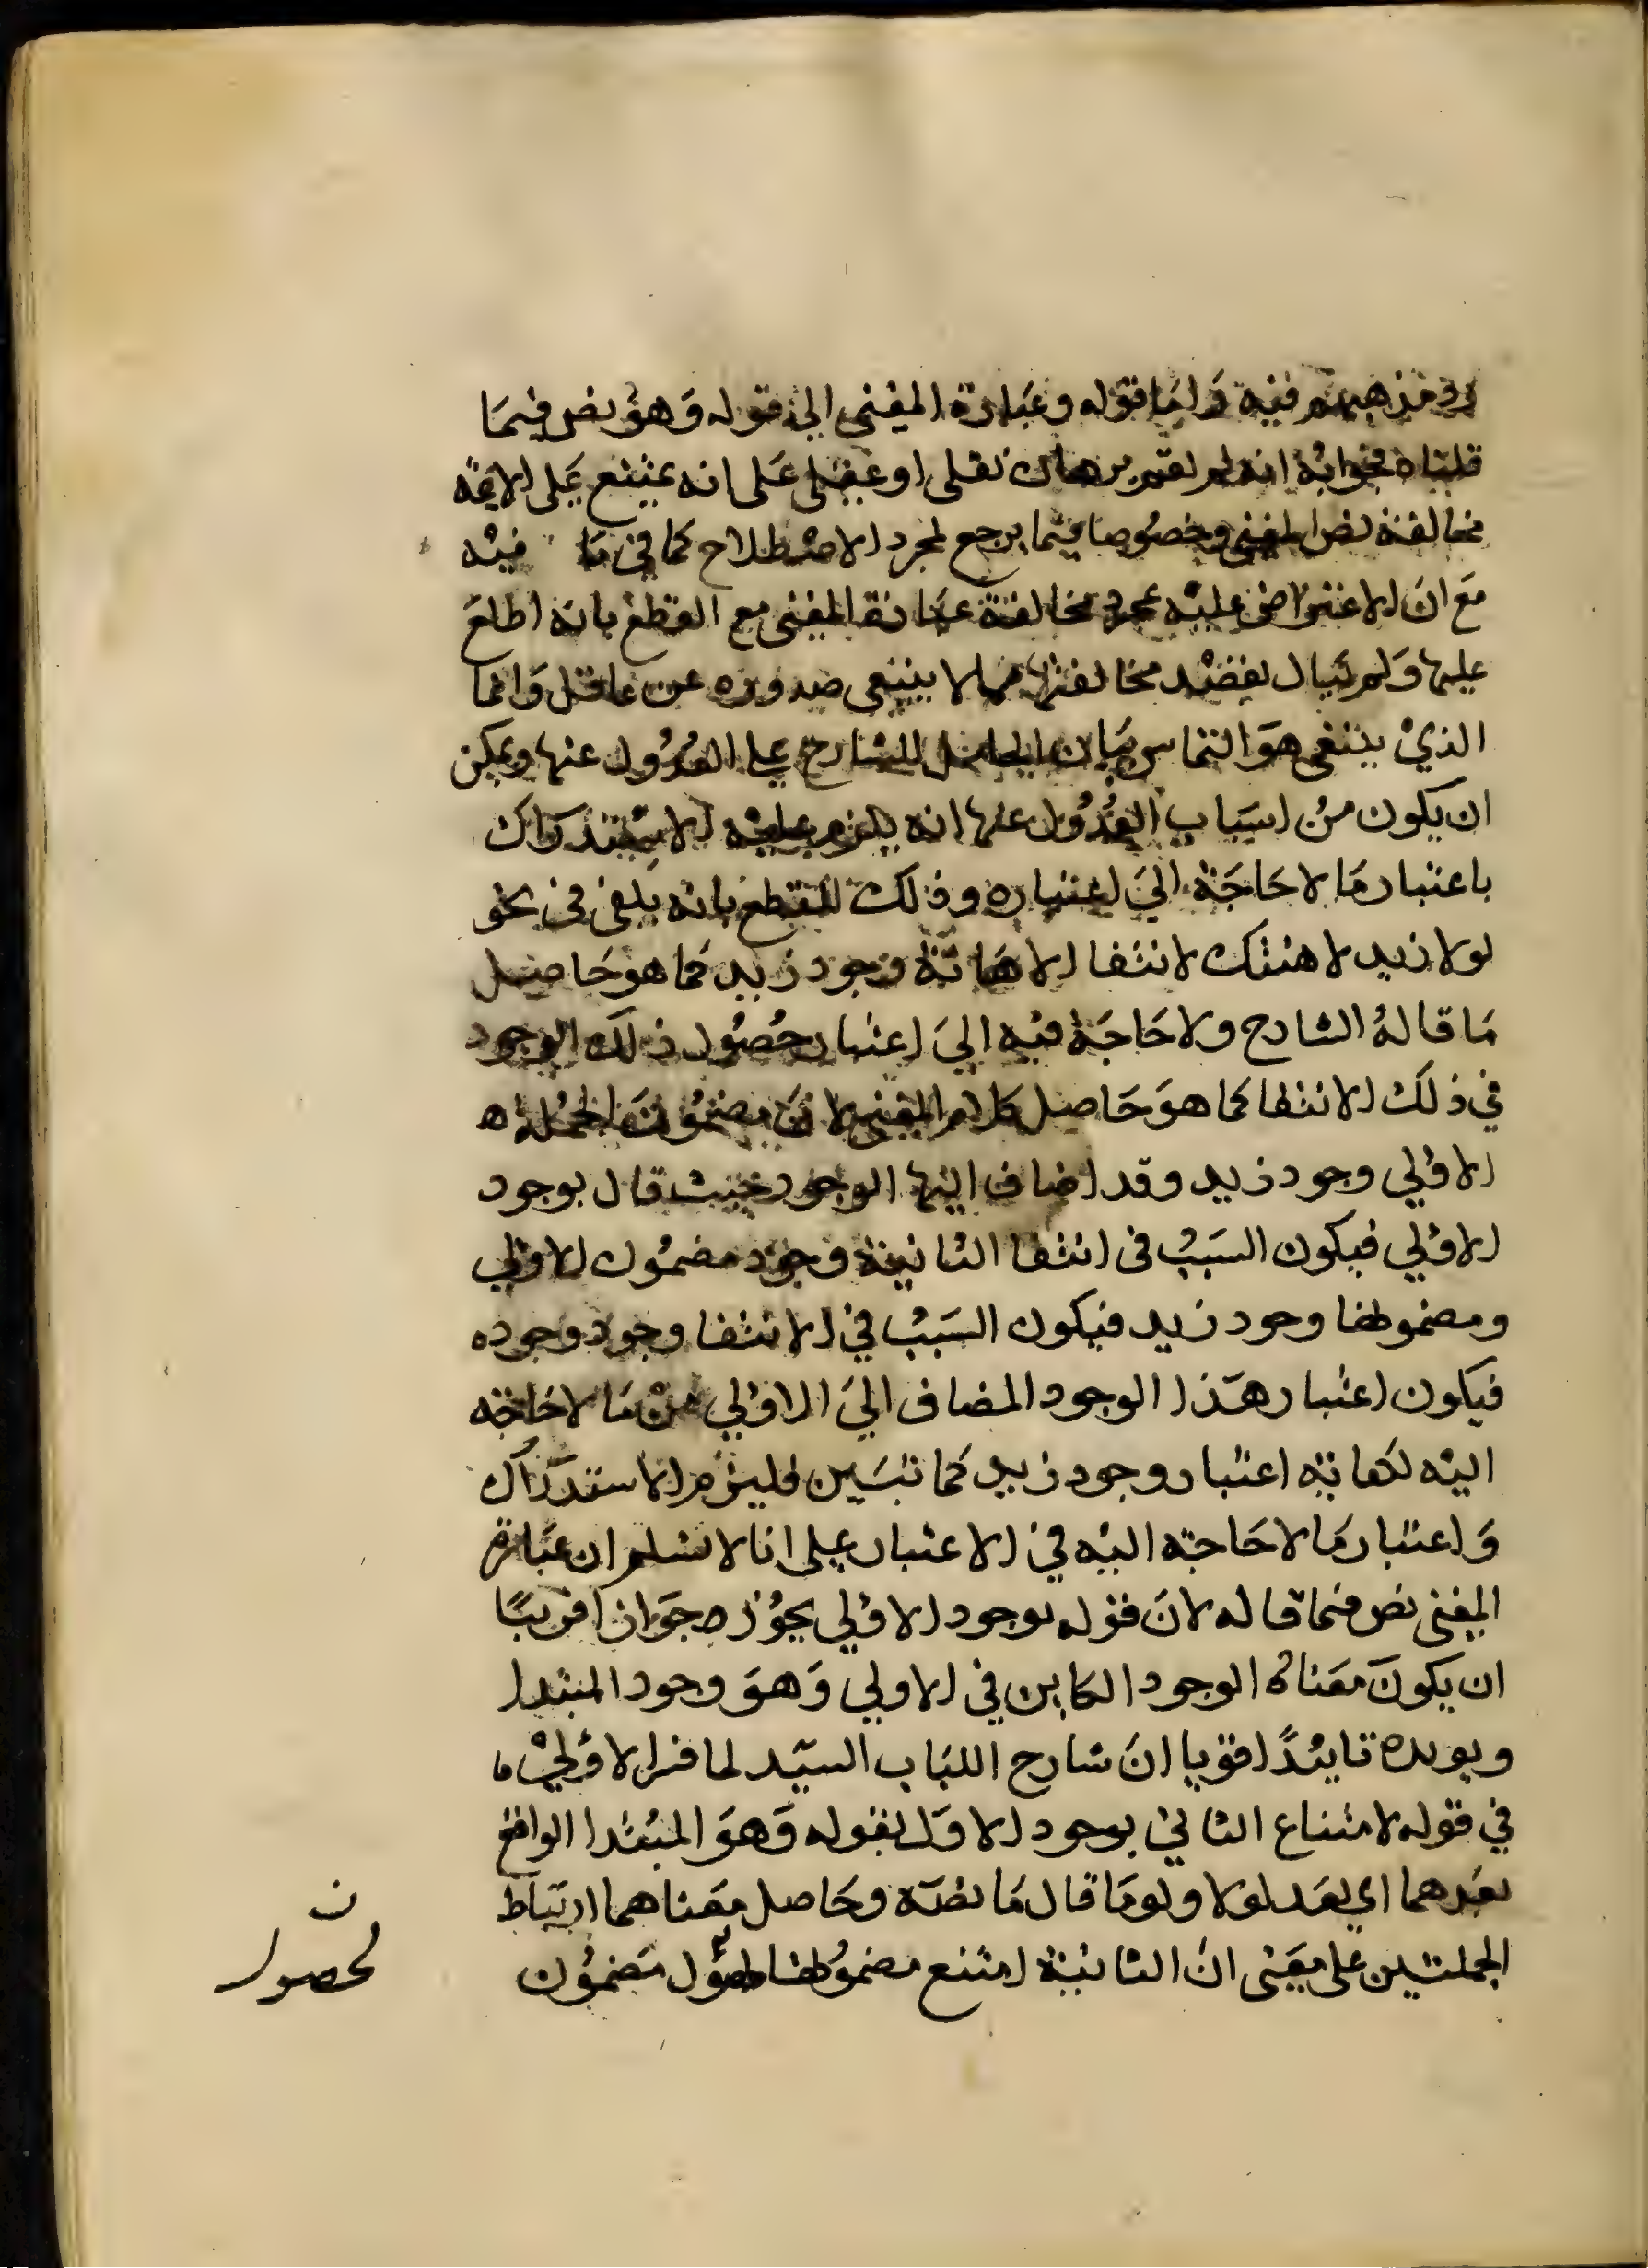 في مذهبهم فيه وَامَا قوله وعبَارة المغني الي قوله وَهوَ نص فيمَا
قلناه فجوابه انه لم تقم برهان نقلى او عقلى عَلى انه يمتنع عَلى الايمَّه
مخالفة نص المغني وخصُوصا فيما يرجع لمجرد الاصْطلاح كما في مَا فيْه
مَع انَ الاعتراض عليْه بمجرد مخالفة عبارة المغنى مع القطع بانه اطلعَ
عليها وَلم يبال بقصْد مخالفتها مما لا ينبغى صدوره عن عاقل وَانما
الذيْ ينبغى هوَ التماس بيَان الحامل للشارح على العدُول عنها ويمكن
ان يكون منْ اسبَاب العُدُول عنها انه يلزم عليْه الاستدرَاك
باعتبار مَا لا حَاجَة اليَ اعتباره وذلكَ للقطع بانه يكفى فى نحو
لولا زيد لاهنتك لانتفا الاهَانَة وجود زيد كما هو حَاصل
مَا قالهُ الشارح ولا حَاجَة فيه اليَ اعتبار حُصُول ذلكَ الوجود
في ذلكَ الانتفا كما هوَ حَاصل كلام المغنى لانَ مضمُونَ الجمُله
الاوْلي وجود زيد وقد اضاف اليْها الوجود حيث قال بوجود
الاوْلي فيكون السَببُ فى انتفا الثانية وجود مضمُون الاوْلي
ومضمونها وجود زيد فيكون السَببُ في الانتفا وجود وجوده
فيكون اعتبار هَذا الوجود المضاف اليَ الاوْلي منْ مَا لا حَاجَه
اليْه لكفايته اعتبار وجود زيد كما تبَين فليزم الاستدرَاك
وَاعتبار مَا لا حَاجة اليْه في الاعتبار على انا لا نسلم ان عبَارة
المغنى نص فيما قاله لانَ قوله بوجود الاوْلي يجوْز جوَازا قريبًا
ان يكونَ معَناه الوجود الكاين في الاولي وَهوَ وجود المبتدا
ويويده تاييْدًا قويا انَ شارح اللبَاب السيّد لما فسر الاوْليْ
في قوله لامتناع الثاني بوجود الاوَل بقوله وَهوَ المبْتدا الواقع
بعَدهما اي بعَد لولا ولومَا قال مَا نصّه وحَاصل معَناهما ارتبَاط
الجملتين على معَنى انَ الثانيْة امتنع مضمُونها لحصُول مَضمُون
ن
لحصول